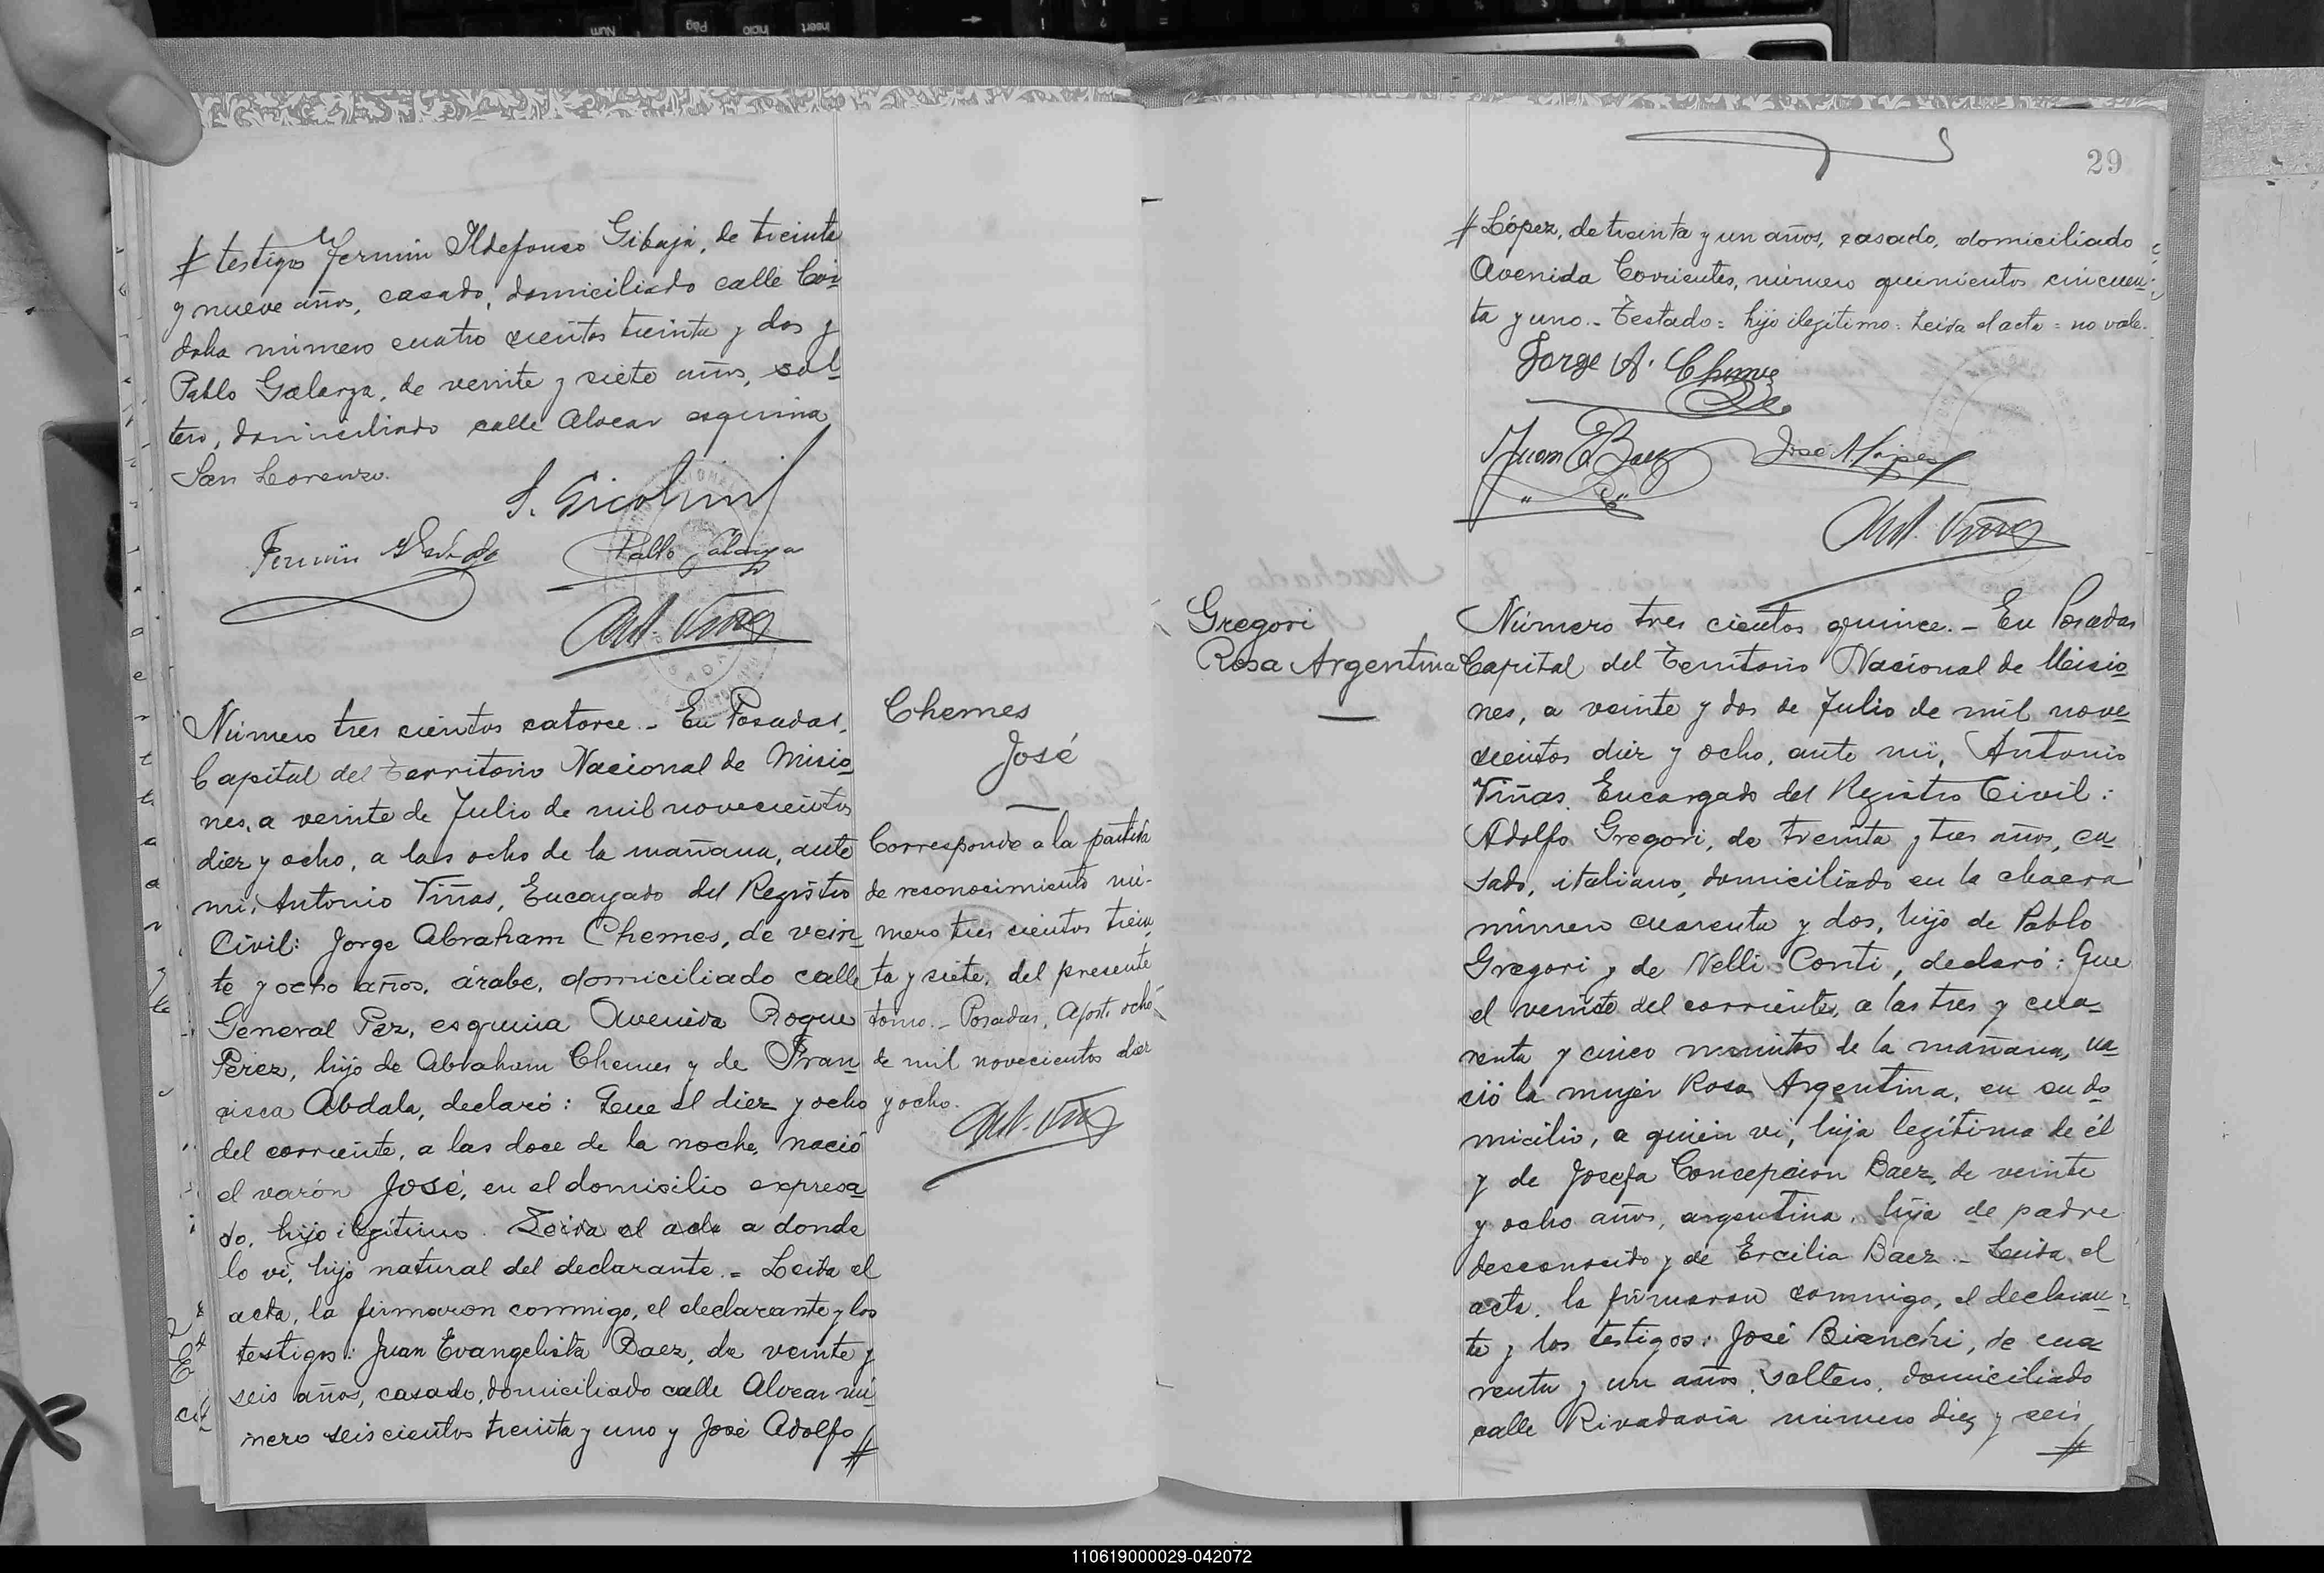 # testigos Fermin Ildefonso Gibaja, de treinta
y nueve años, casado, domiciliado calle Cór
doba número cuatro cientos treinta y dos y
Pablo Galarza, de veinte y siete años, sol
tero, domiciliado calle Alvear esquina
San Lorenzo.
Fermin
Pablo Galarza
Ant. Viñas
Número tres cientos catorce. - En Posadas,
Capital del Territorio Nacional de Misio
nes, a veinte de Julio de mil novecientos
diez y ocho, a las ocho de la mañana, ante
mi, Antonio Viñas, Encargado del Registro
Civil: Jorge Abraham Chemes, de vein
te y ocho años, árabe, domiciliado calle
General Paz, esquina Avenida Roque
Perez, hijo de Abraham Chemes y de Fran
cisca Abdala, declaró: Que el diez y ocho
del corriente, a las doce de la noche, nació
el varón José, en el domicilio expresa
do, hijo ilegitimo. Leida el acta a donde
lo vi, hijo natural del declarante. = Leida el
acta, la firmaron conmigo, el declarante y los
testigos: Juan Evangelista Baez, de veinte y
seis años, casado, domiciliado calle Alvear nú
mero seiscientos treinta y uno y José Adolfo #
Chemes
José
Corresponde a la partida
de reconocimiento nú-
mero tres cientos trein
ta y siete, del presente
tomo. - Posadas, Agosto ocho
de mil novecientos diez
y ocho.
Ant. Viñas
29
# López, de treinta y un años, casado, domiciliado
Avenida Corrientes, número quinientos cincuen
ta y uno. - Testado = hijo ilegitimo = Leida el acta = no vale.
Jorge A. Chemes
Juan E Baez José A. López
Ant. Viñas
Gregori
Rosa Argentina
Número tres cientos quince. - En Posadas
Capital del Territorio Nacional de Misio
nes, a veinte y dos de Julio de mil nove
cientos diez y ocho, ante mi, Antonio
Viñas, Encargado del Registro Civil:
Adolfo Gregori, de treinta y tres años, ca
sado, italiano, domiciliado en la chacra
número cuarenta y dos, hijo de Pablo
Gregori y de Nelli Conti, declaró: Que
el veinte del corriente, a las tres y cua-
renta y cinco minutos de la mañana, na
ció la mujer Rosa Argentina, en su do
micilio, a quien vi, hija legítima de él
y de Josefa Concepcion Baez, de veinte
y ocho años, argentina, hija de padre
desconocido y de Ercilia Baez. - Leida el
acta, la firmaron conmigo, el declaran
te y los testigos: José Bianchi, de cua
renta y un años, soltero, domiciliado
calle Rivadavia número diez y seis #
110619000029-042072